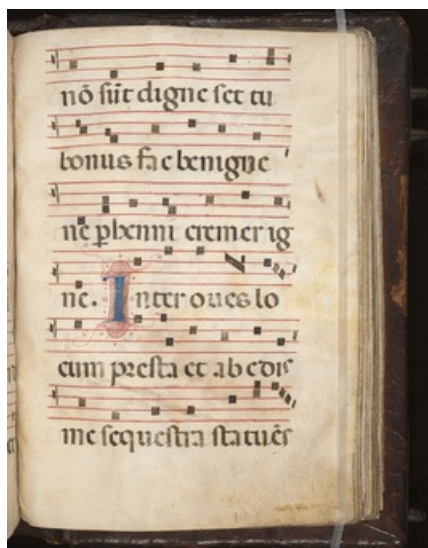 nō sūt digne set tu
bonus fac benigne
ne ꝑhenni cremer ig
ne. Inter oues lo
cum presta et ab edis
me sequestra statuēs